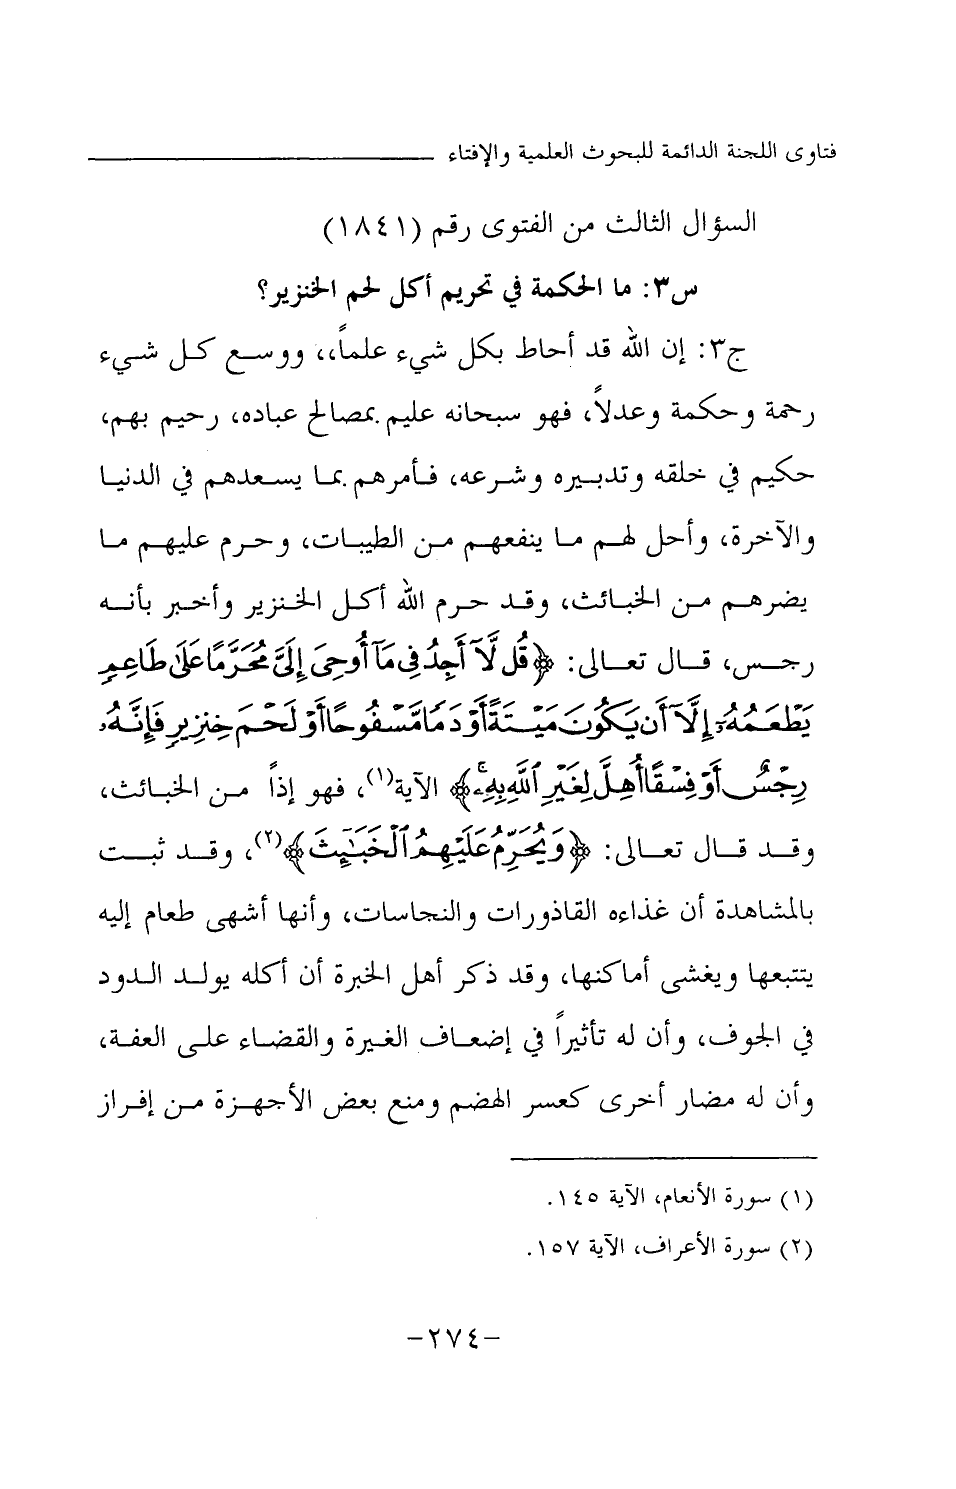 فتاوى اللجنة الدائمة للبحوث العلمية والإفتاء
السؤال الثالث من الفتوى رقم (١٨٤١)
س٣: ما الحكمة في تحريم أكل لحم الخنزير؟
ج٣: إن الله قد أحاط بكل شيء علماً،، ووسع كل شيء
رحمة وحكمة وعدلاً، فهو سبحانه عليم بمصالح عباده، رحيم بهم،
حكيم في خلقه وتدبيره وشرعه، فأمرهم بما يسعدهم في الدنيا
والآخرة، وأحل لهم ما ينفعهم من الطيبات، وحرم عليهم ما
يضرهم من الخبائث، وقد حرم الله أكل الخنزير وأخبر بأنه
رجس، قال تعالى: ﴿قُل لَّآ أَجِدُ فِي مَآ أُوحِيَ إِلَيَّ مُحَرَّمًا عَلَىٰ طَاعِمٍ
يَطْعَمُهُۥٓ إِلَّآ أَن يَكُونَ مَيْتَةً أَوْ دَمًا مَّسْفُوحًا أَوْ لَحْمَ خِنزِيرٍ فَإِنَّهُۥ
رِجْسٌ أَوْ فِسْقًا أُهِلَّ لِغَيْرِ ٱللَّهِ بِهِۦۚ﴾ الآية(١)، فهو إذاً من الخبائث،
وقد قال تعالى: ﴿وَيُحَرِّمُ عَلَيْهِمُ ٱلْخَبَـٰٓئِثَ﴾(٢)، وقد ثبت
بالمشاهدة أن غذاءه القاذورات والنجاسات، وأنها أشهى طعام إليه
يتتبعها ويغشى أماكنها، وقد ذكر أهل الخبرة أن أكله يولد الدود
في الجوف، وأن له تأثيراً في إضعاف الغيرة والقضاء على العفة،
وأن له مضار أخرى كعسر الهضم ومنع بعض الأجهزة من إفراز
(١) سورة الأنعام، الآية ١٤٥.
(٢) سورة الأعراف، الآية ١٥٧.
-٢٧٤-